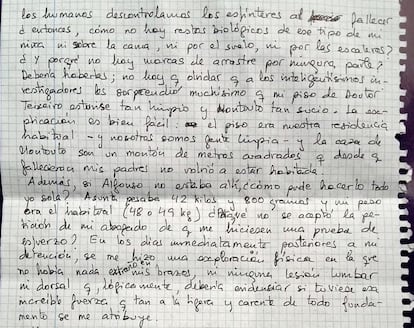 los humanos descontrolamos los esfínteres al fallecer
¿entonces, cómo no hay restos biológicos de ese tipo de mi
niña ni sobre la cama, ni por el suelo, ni por las escaleras?
¿Y porqué no hay marcas de arrastre por ninguna parte?
Debería haberlas; no hay q olvidar q a los inteligentísimos in-
vestigadores les sorprendió muchísimo q mi piso de Doctor
Teixeiro estuviese tan limpio y Montouto tan sucio. La ex-
plicación es bien fácil el piso era nuestra residencia
habitual - y nosotros somos gente limpia - y la casa de
Montouto son un montón de metros cuadrados q desde q
fallecieron mis padres no volvió a estar habitada.
Además, si Alfonso no estaba allí, ¿cómo pude hacerlo todo
yo sola? Asunta pesaba 42 kilos y 800 gramos y mi peso
era el habitual (48 o 49 kg) ¿Porque no se aceptó la pe-
tición de mi abogado de q me hiciesen una prueba de
esfuerzo? En los días inmediatamente posteriores a mi
detención, se me hizo una exploración física en la que
no había nada extraño en mis brazos, ni ninguna lesión lumbar
ni dorsal q, lógicamente, debería evidenciar si tuviese esa
increíble fuerza q tan a la ligera y carente de todo funda-
mento se me atribuye.